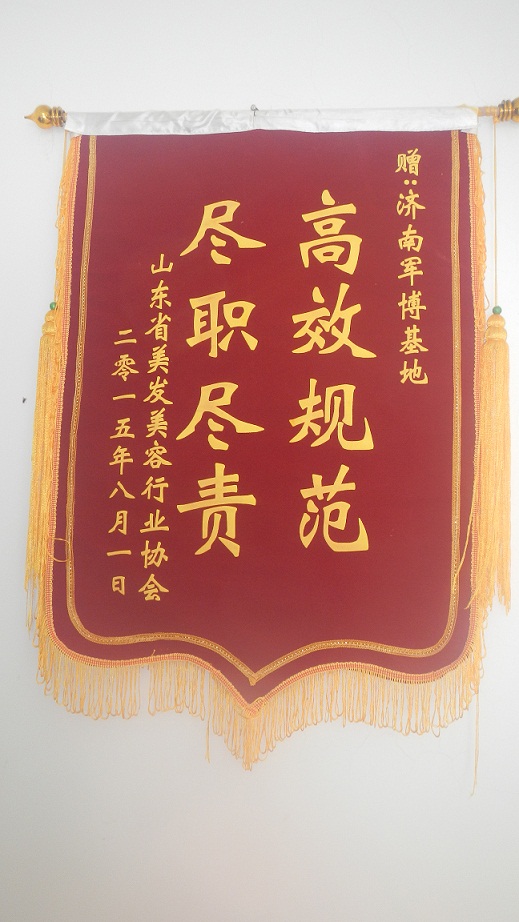 赠:济南军博基地
高效规范
尽职尽责
山东省美发美容行业协会
二零一五年八月一日